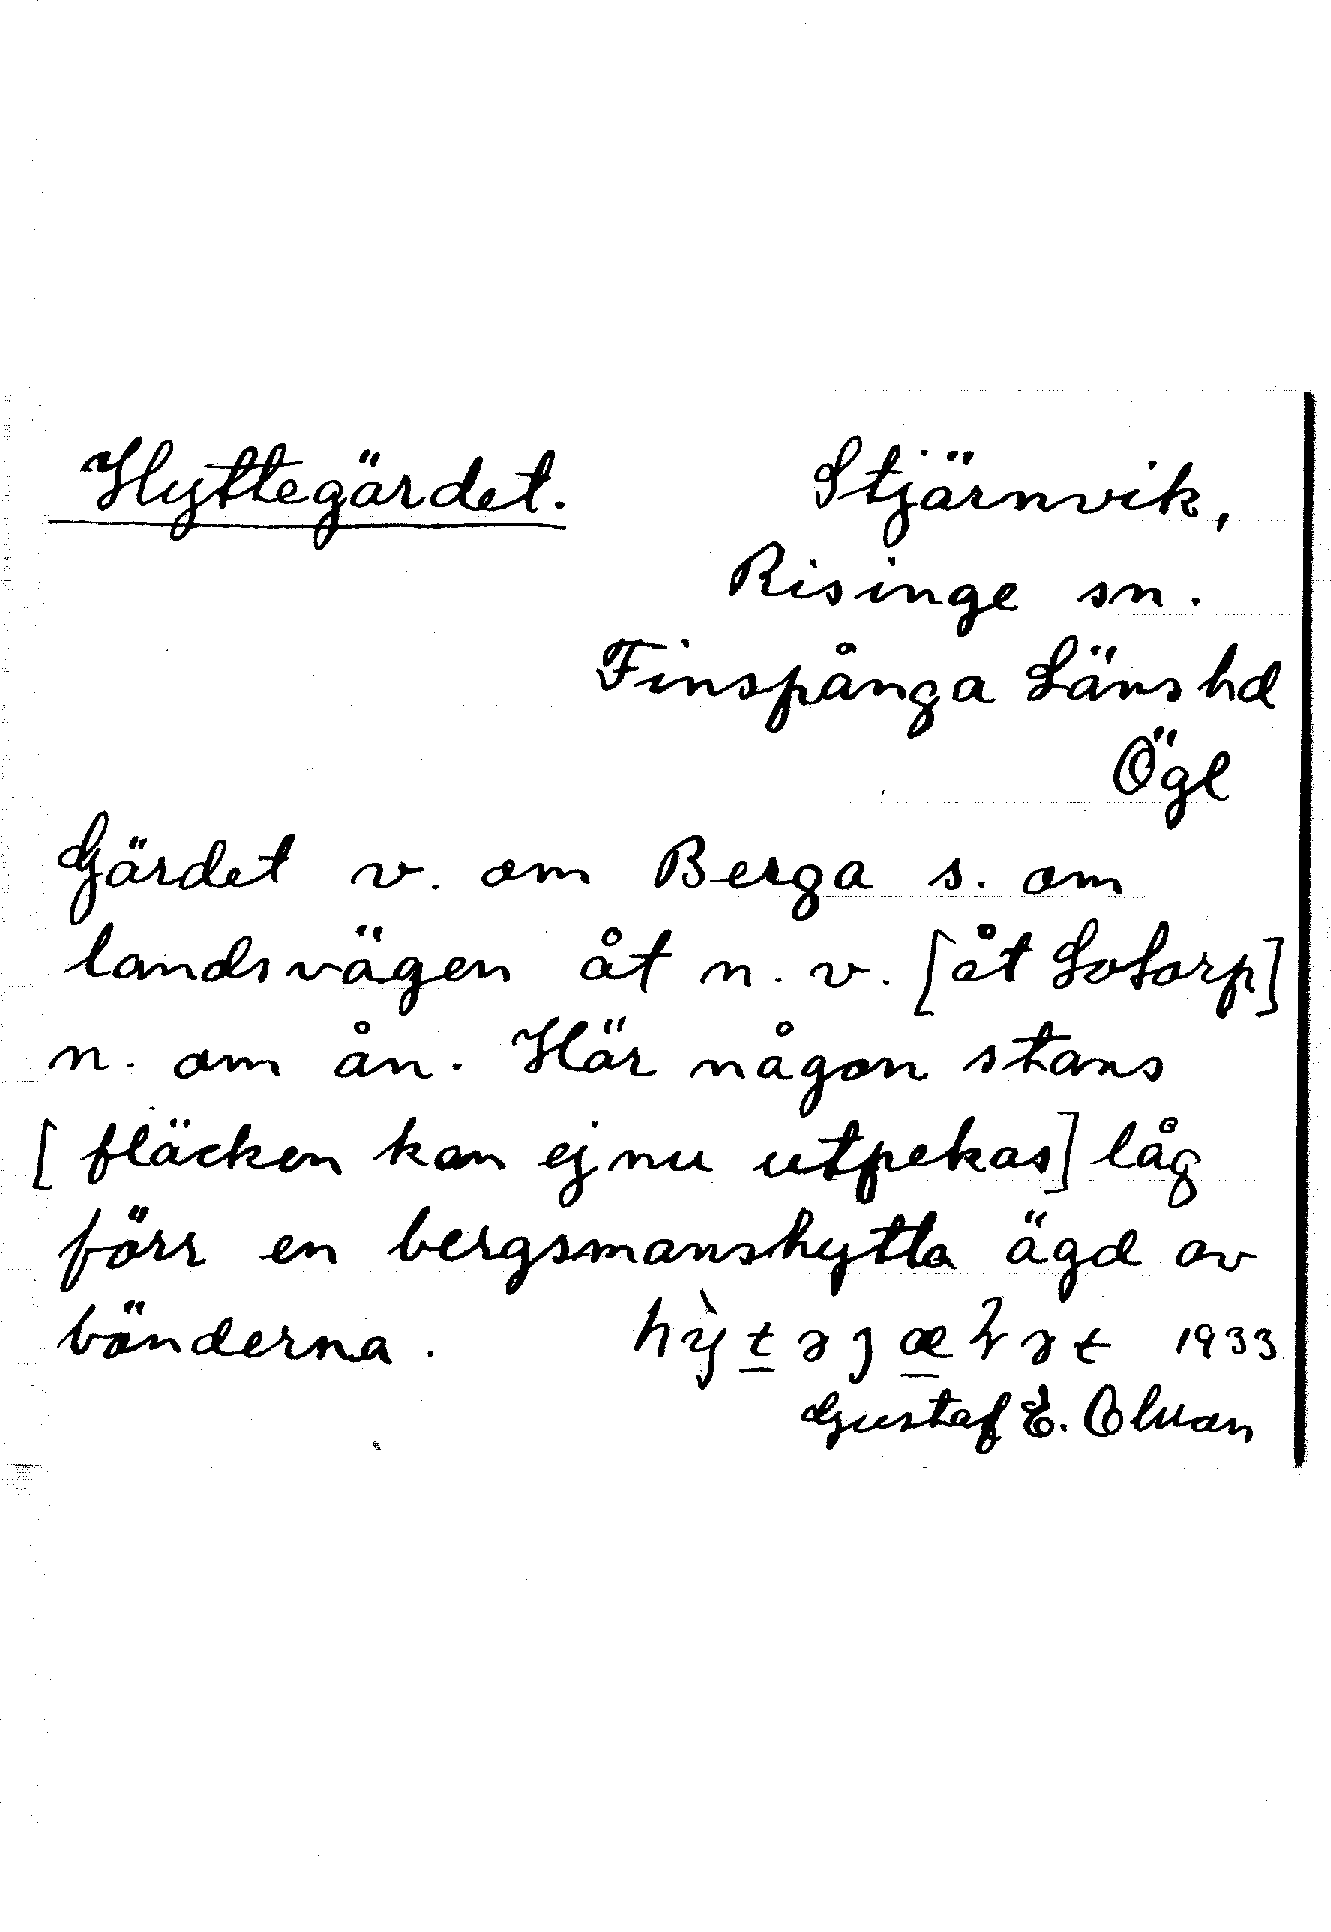 Hyttegärdet. Stjärnvik,
Risinge sn.
Finspånga Läns hd
Ögl
Gärdet v. om Berga s. om
landsvägen åt n. v. [åt Lotorp]
n. om ån. Här någon stans
[fläcken kan ej nu utpekas] låg
förr en bergsmanshytta ägd av
bönderna. 1933
Gustaf E.